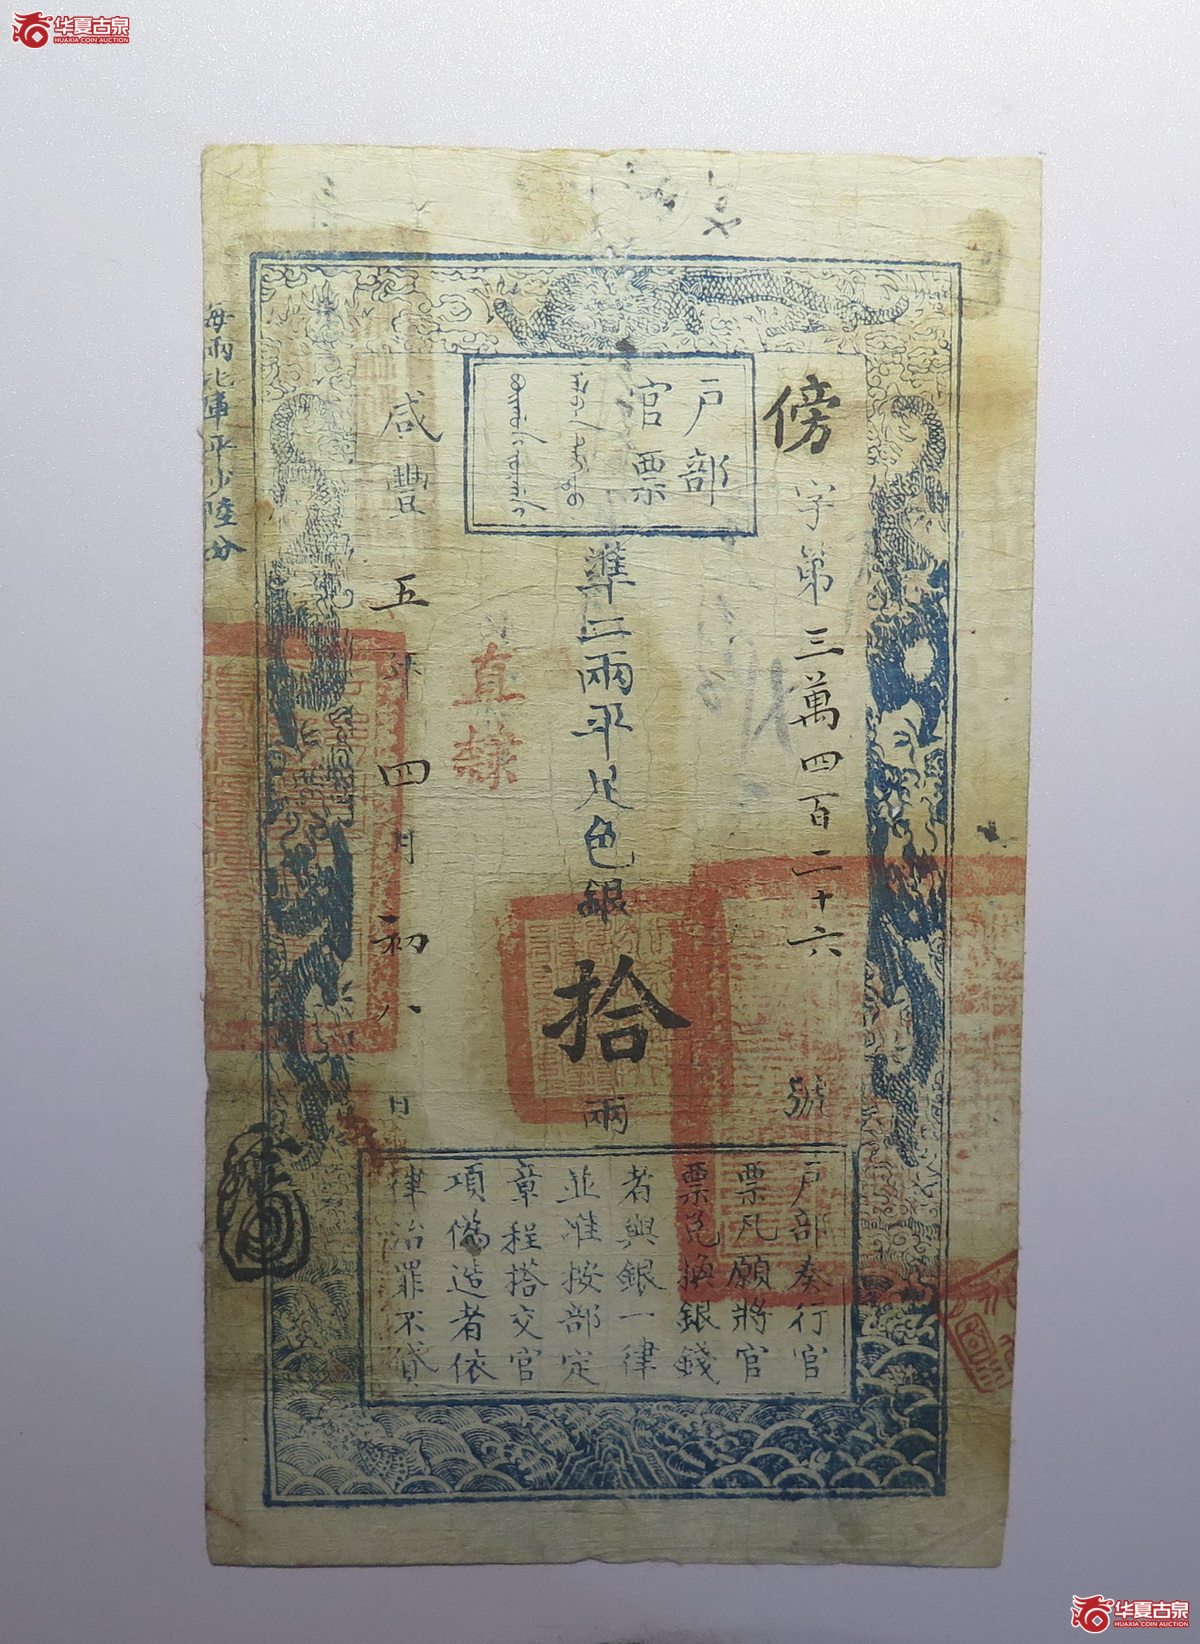 华夏古泉
HUAXIA COIN AUCTION
戶部
官票
傍字第三萬四百二十六號
準二兩平足色銀拾兩
直隸
咸豐五年四月初八日
每兩比庫平少陸分
戶部奏行官
票凡願將官
票兌換銀錢
者與銀一律
並准按部定
章程搭交官
項偽造者依
律治罪不貸
华夏古泉
HUAXIA COIN AUCTION